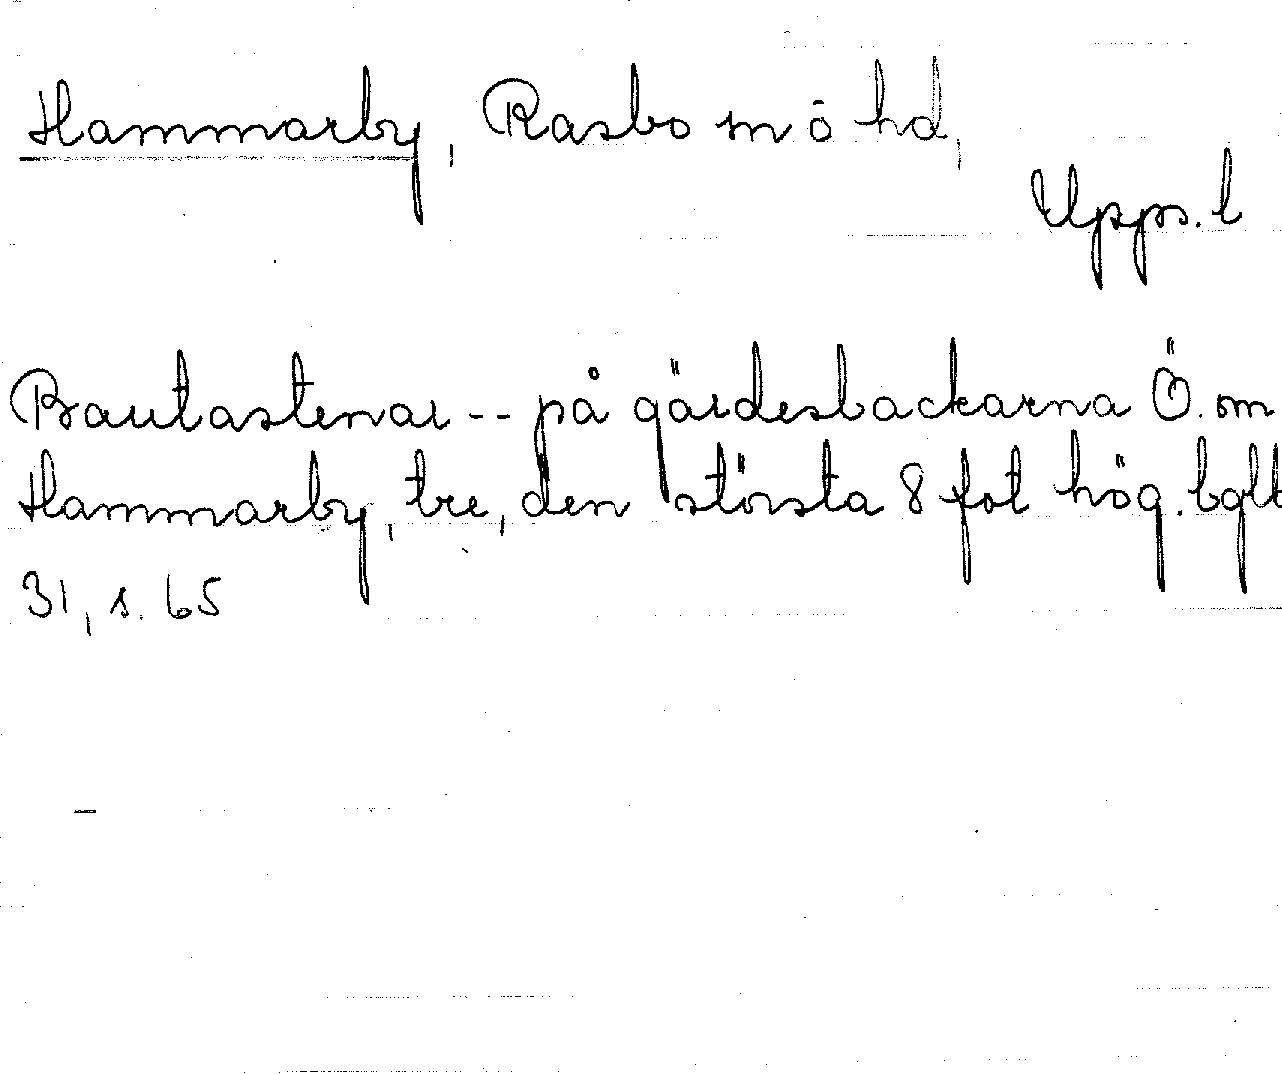 Hammarby, Rasbo sn o hd,
Upps. l
Bautastenar -- på gärdesbackarna Ö. om
Hammarby, tre, den största 8 fot hög. bgtl
31, s. 65